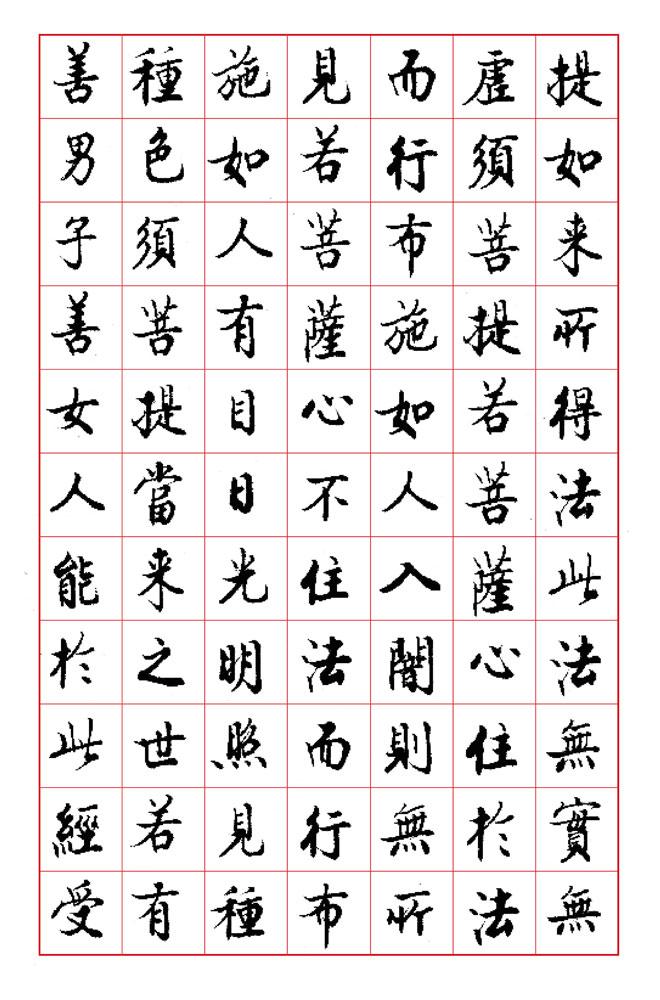 提如来所得法此法無實無
虛須菩提若菩薩心住於法
而行布施如人入闇則無所
見若菩薩心不住法而行布
施如人有目日光明照見種
種色須菩提當来之世若有
善男子善女人能於此經受